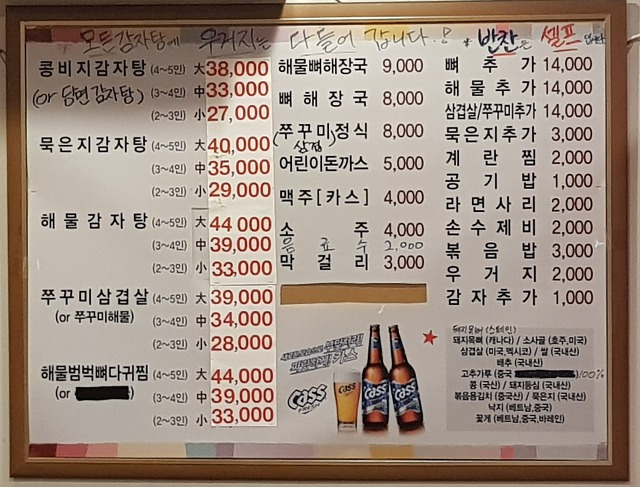 모든감자탕에 우거지는 다들어 갑니다.!
* 반찬은 셀프 입니다
콩비지감자탕 (4~5인) 大 38,000
(or 당면감자탕) (3~4인) 中 33,000
(2~3인) 小 27,000
묵은지감자탕 (4~5인) 大 40,000
(3~4인) 中 35,000
(2~3인) 小 29,000
해물감자탕 (4~5인) 大 44,000
(3~4인) 中 39,000
(2~3인) 小 33,000
쭈꾸미삼겹살 (4~5인) 大 39,000
(or 쭈꾸미해물) (3~4인) 中 34,000
(2~3인) 小 28,000
해물범벅뼈다귀찜 (4~5인) 大 44,000
(or (3~4인) 中 39,000
(2~3인) 小 33,000
해물뼈해장국 9,000
뼈해장국 8,000
(쭈꾸미정식 8,000
삼겹)
어린이돈까스 5,000
맥주[카스] 4,000
소주 4,000
음료수 2,000
막걸리 3,000
Cass
FRESH
Cass
Cass
Cass
뼈추가 14,000
해물추가 14,000
삼겹살/쭈꾸미추가 14,000
묵은지추가 3,000
계란찜 2,000
공기밥 1,000
라면사리 2,000
손수제비 2,000
볶음밥 3,000
우거지 2,000
감자추가 1,000
돼지목뼈 (캐나다) / 소사골 (호주,미국)
삼겹살 (미국,멕시코) / 쌀 (국내산)
배추 (국내산)
고추가루 (중국 100%
콩 (국산) / 돼지등심 (국내산)
볶음용김치 (중국산) / 묵은지 (국내산)
낙지 (베트남,중국)
꽃게 (베트남,중국,바레인)